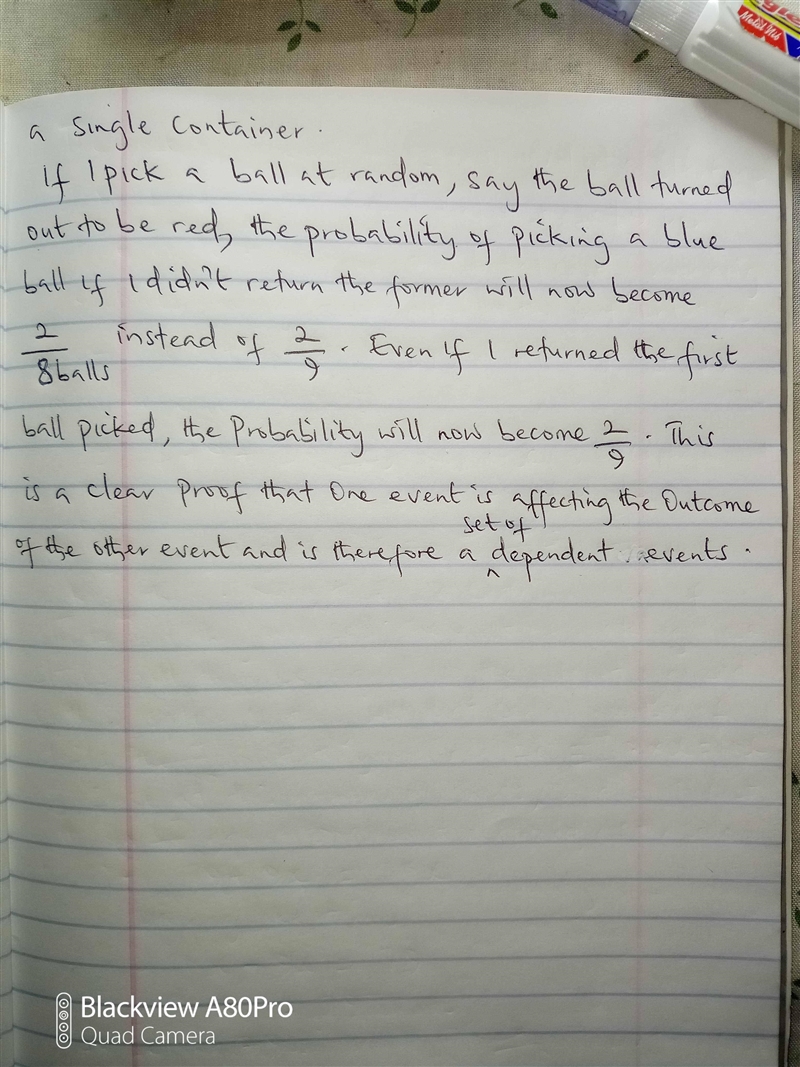 Metal Nib
a single container.
If I pick a ball at random, say the ball turned
out to be red, the probability of picking a blue
ball if I didn't return the former will now become
2/8balls instead of 2/9. Even if I returned the first
ball picked, the Probability will now become 2/9. This
is a clear proof that One event is affecting the Outcome
set of
of the other event and is therefore a ^ dependent events.
Blackview A80Pro
Quad Camera